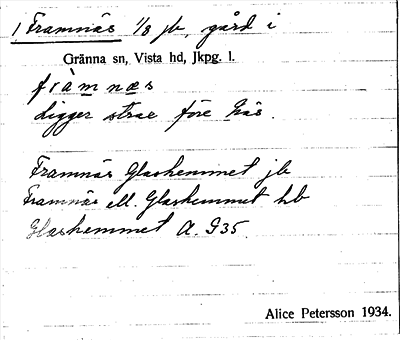 1, Framnäs 1/8 jb, gård i
Gränna sn, Vista hd, Jkpg. l.
fràmnæs
Ligger strax före Näs.
Framnäs Glashemmet jb
Framnäs ell. Glashemmet hb
Glashemmet A. G35.
Alice Petersson 1934.